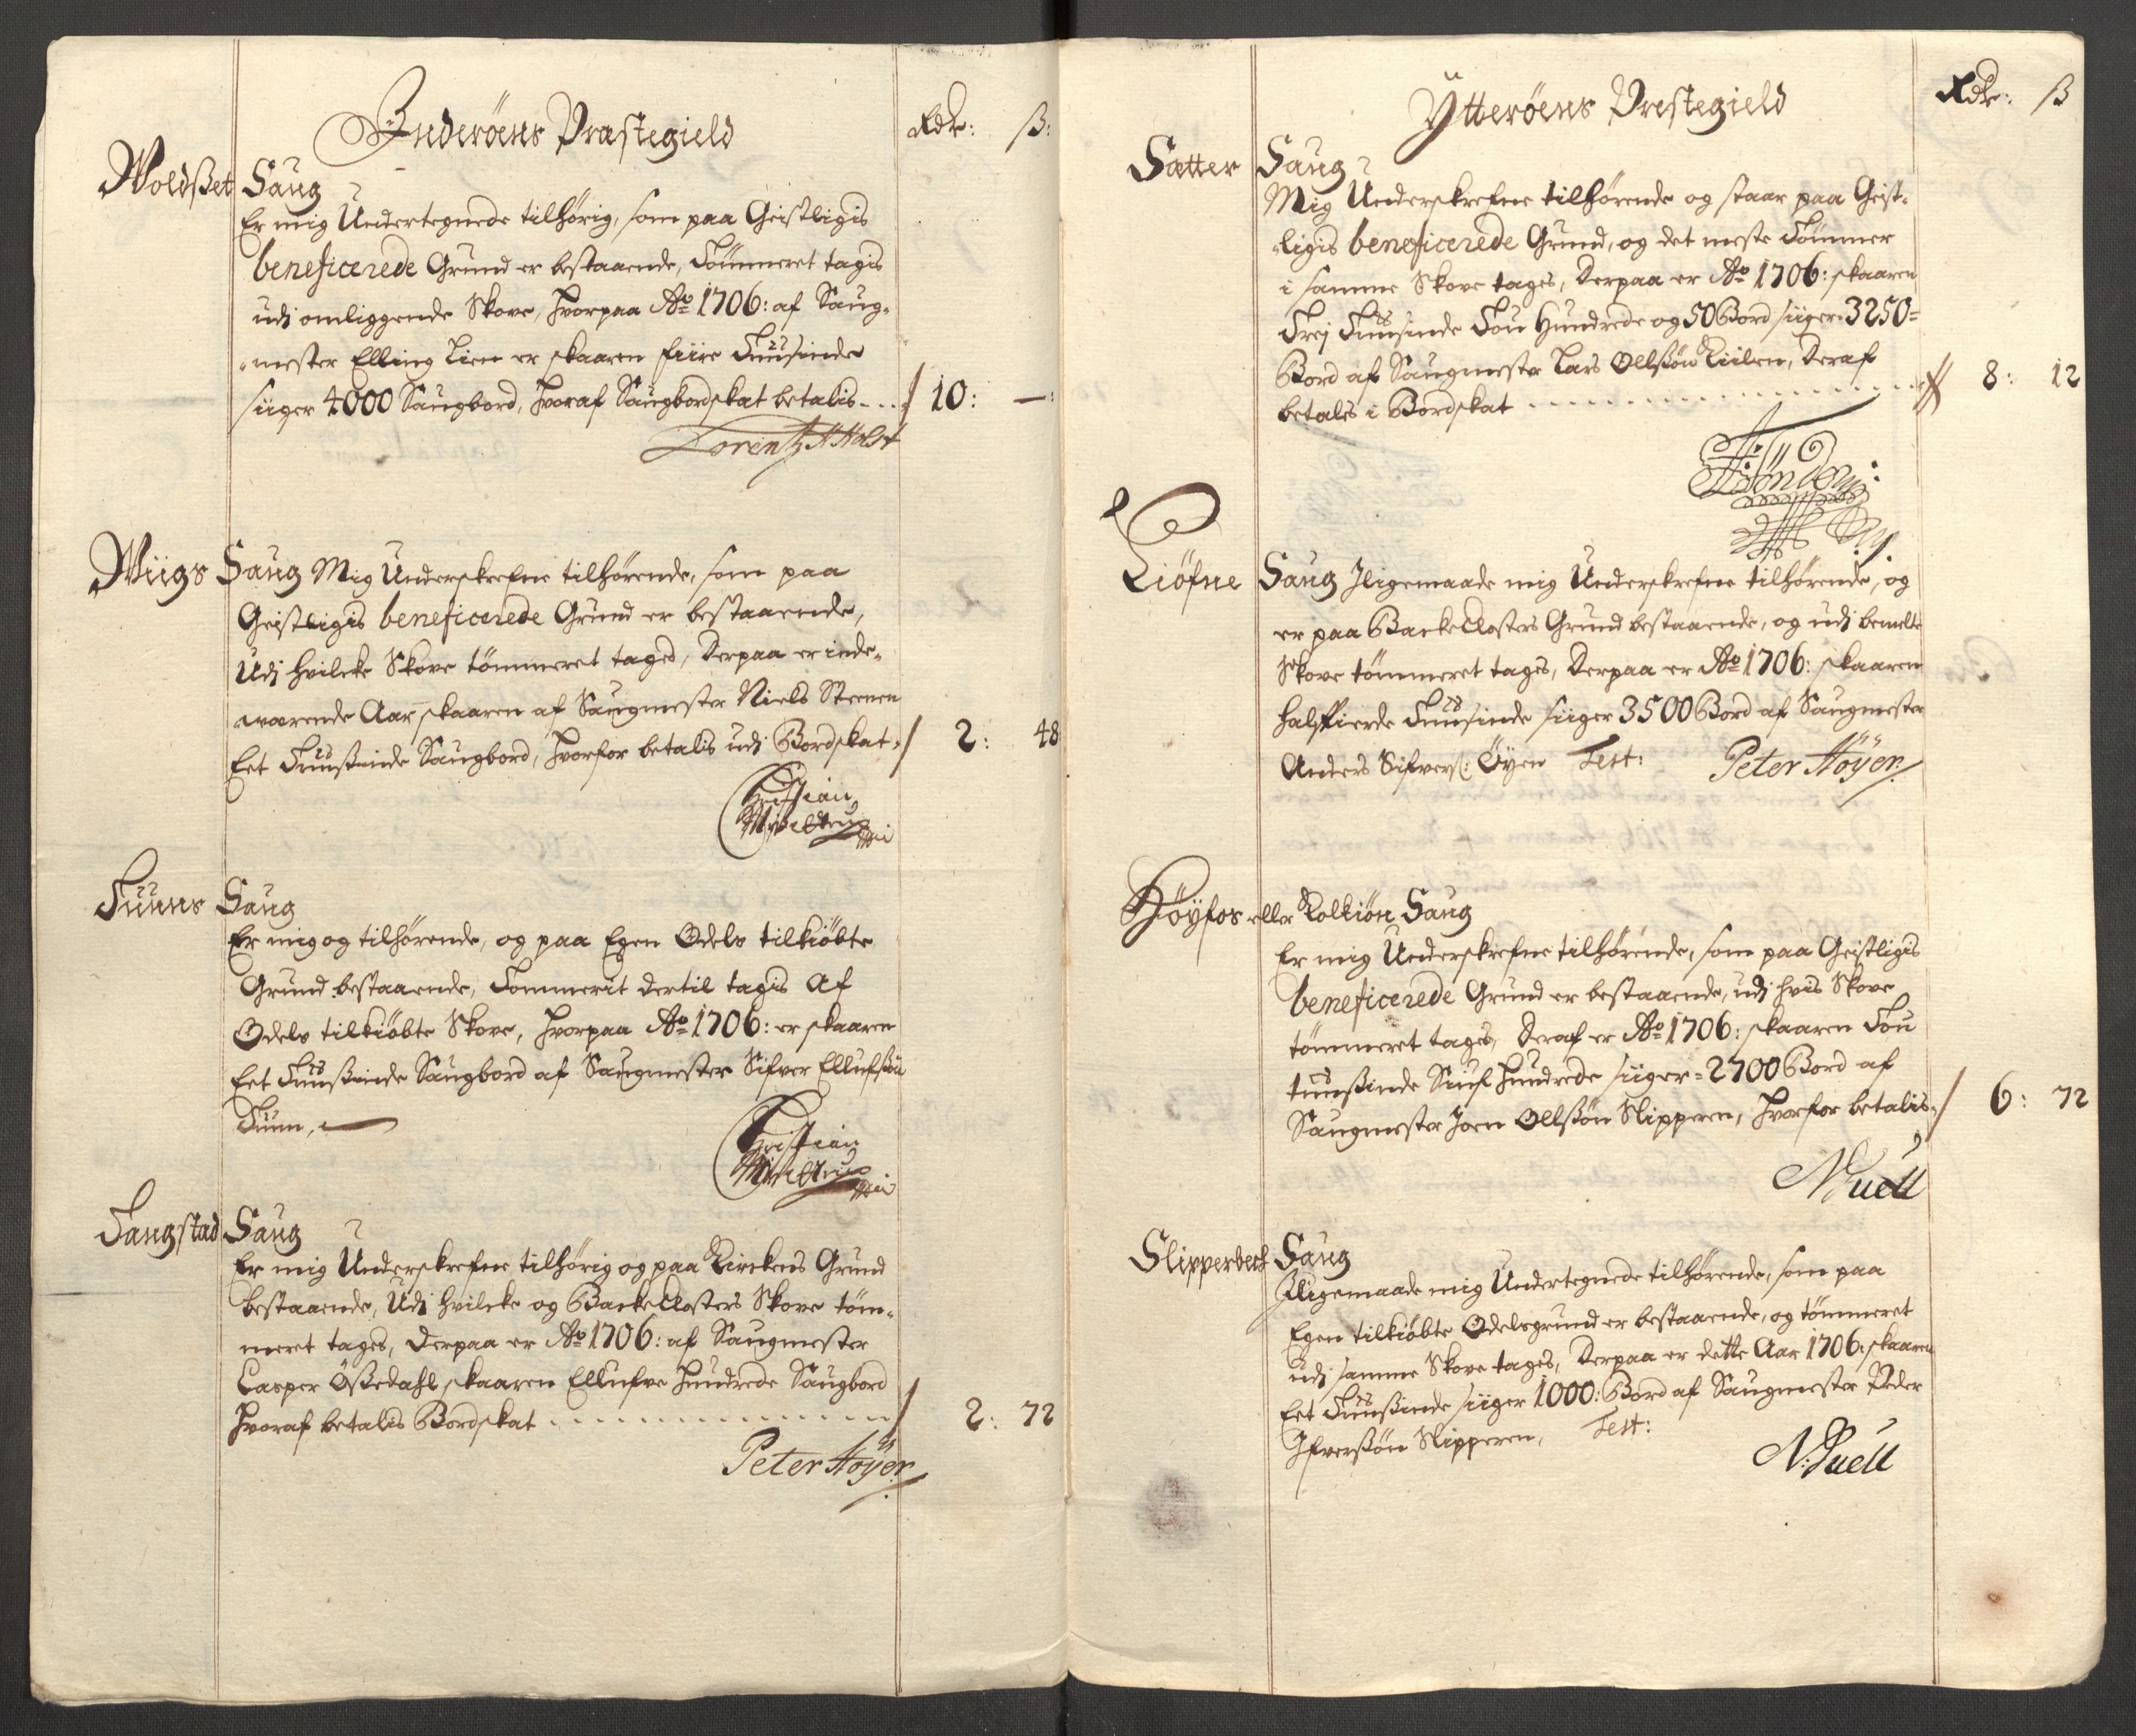 Inderöens Præstegield
Rdr: ß:
Woldßet Saug
Er mig Undertegnede tilhörig, som paa Geistligis
beneficerede Grund er bestaaende, Tömmeret tagis
udj omliggende Skove, hvorpaa Ao 1706: af Saug-
mester Elling Lien er skaaren fiire Tuusinde
siiger 4000 Saugbord, hvoraf Saugbordskat betalis 10: —:
Lorentz Holst
Wiigs Saug Mig Underskrefne tilhørende, som paa
Geistligis beneficerede Grund er bestaaende,
Udj hvilcke Skove tömmeret taged, Derpaa er inde-
værende Aar skaaren af Saugmester Niels Steenen
Eet Tuusinde Saugbord, hvorfor betalis udj Bordskat 2: 48
Christian
Suuns Saug
Er mig og tilhørende, og paa Egen Odels tilkiöbte
Grund bestaaende, Tömmerit dertil tagis af
Odels tilkiöbte Skove, hvorpaa Ao 1706: er skaaren
Eet Tuusinde Saugbord af Saugmester Sifver Ellufsön
Suun,
Christian
Saugstad Saug
Er mig Underskrefne tilhörig og paa Kirckens Grund
bestaaende, Udj hvilcke og Backe Closters Skove töm-
meret tages, derpaa er Ao 1706: af Saugmester
Casper Ößedahl skaaren Ellufve hundrede Saugbord
hvoraf betalis Bordskat 2: 72
Peter Höyer
Ytteröens Prestegield
Rdr: ß
Sætter Saug
Mig Underskrefne tilhørende og staar paa Geist-
ligis beneficerede Grund, og det meste Tömmer
i samme Skove tages, Derpaa er Ao 1706: skaaren
Trej Tuusinde Tou Hundrede og 50 Bord siiger 3250
Bord af Saugmester Lars Ollßön Kiilen, Deraf
betales i Bordskat 8: 12
Liöfne Saug Iligemaade mig Underskrefne tilhørende, og
er paa Backe Closters Grund bestaaende, og udj bemelte
Skove tömmeret tages, Derpaa er Ao 1706: skaaren
halffierde Tuusinde siiger 3500 Bord af Saugmester
Anders Sifvers: Öyen Test: Peter Höyer
Höyfos eller Kolkiön Saug
Er mig Underskrefne tilhørende, som paa Geistligis
beneficerede Grund er bestaaende, udj hvis Skove
tömmeret tages, Deraf er Ao 1706: skaaren Tou
tuusinde Siuf hundrede siiger 2700 Bord af
Saugmester Joen Ollßön Slipperen, hvorfor betalis 6: 72
N Buell
Slipperbech Saug
Iligemaade mig Undertegnede tilhørende, som paa
Egen tilkiöbte Odelsgrund er bestaaende, og tömmeret
udj samme Skove tages, Derpaa er dette Aar 1706: skaaren
Eet Tuusinde siiger 1000: Bord af Saugmester Peder
Ifverßön Slipperen, Test:
N: Buell